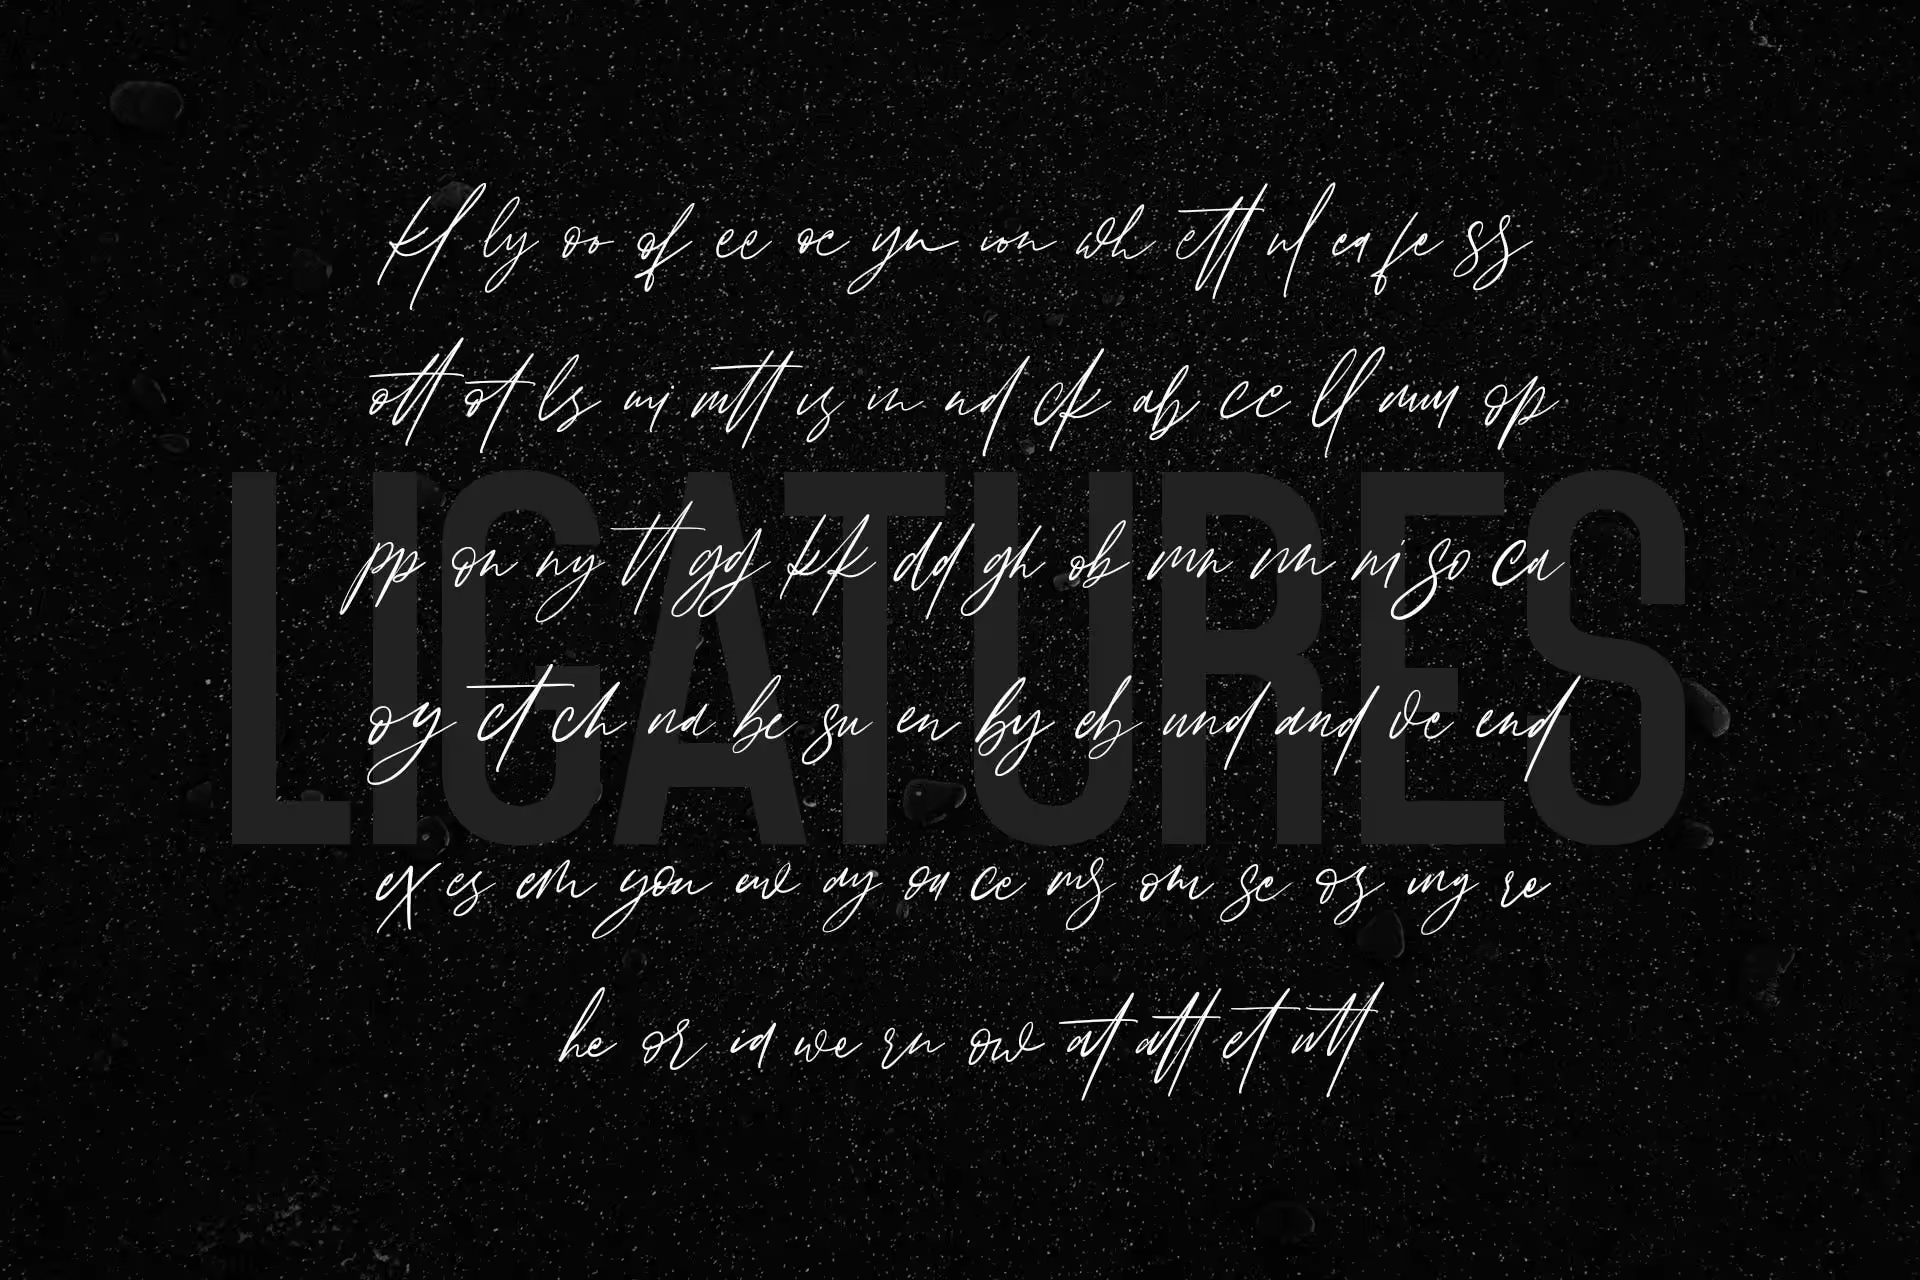 kl ly oo of ee oc yn ion wh ett ul ea fe ss
ott ot ls mi mtt is in nd ck ab cc ll mm op
pp on ny tt gg kk dd gh ob mn nn ni so ca
LIGATURES
oy ct ch na be su en by eb und and ve end
ex es em you ew ay ou ce ms om sc os ing re
he or id we rn ow at att et utt